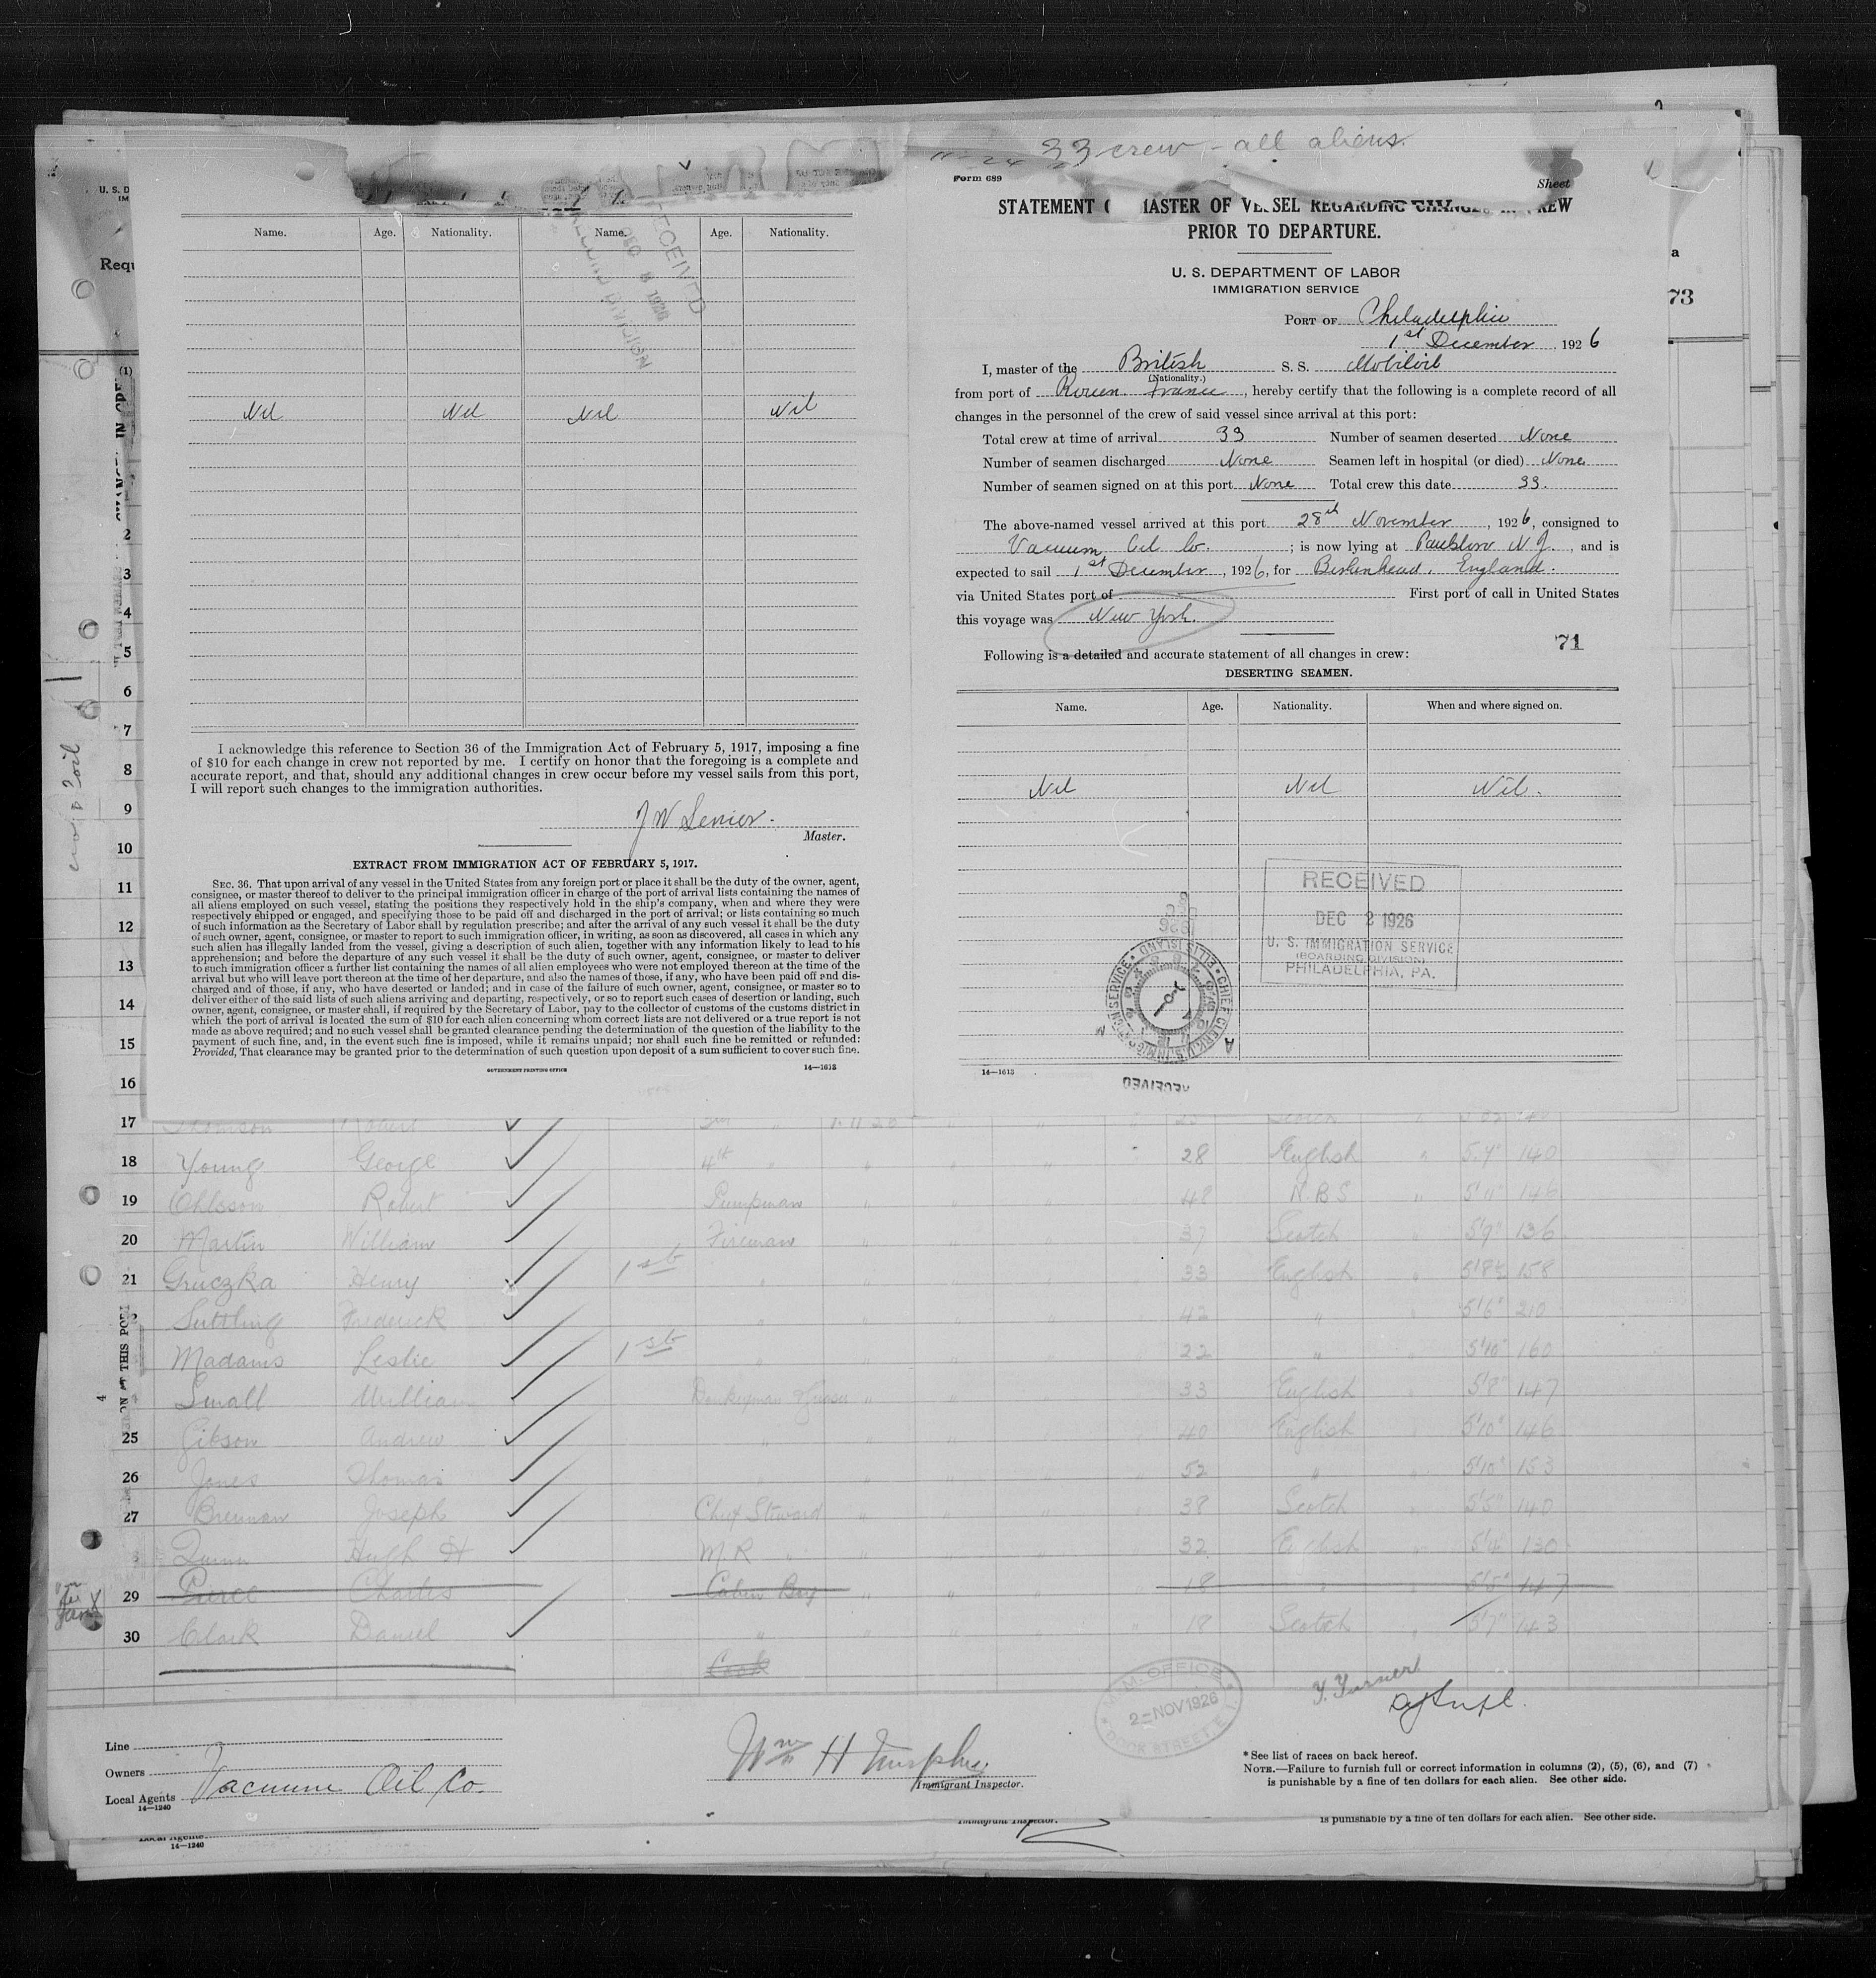 33 crew - all aliens.
Form 689
Sheet
STATEMENT MASTER OF VESSEL REGARDING CHANGES IN CREW
PRIOR TO DEPARTURE.
U. S. DEPARTMENT OF LABOR
IMMIGRATION SERVICE
PORT OF Philadelphia
1st December, 1926
I, master of the British S. S. Mobiloil
(Nationality.)
from port of Rouen France, hereby certify that the following is a complete record of all
changes in the personnel of the crew of said vessel since arrival at this port:
Total crew at time of arrival 33 Number of seamen deserted None
Number of seamen discharged None Seamen left in hospital (or died) None
Number of seamen signed on at this port None Total crew this date 33.
The above-named vessel arrived at this port 28th November, 1926, consigned to
Vacuum Oil Co. ; is now lying at Paulsboro N.J., and is
expected to sail 1st December, 1926, for Birkenhead, England.
via United States port of First port of call in United States
this voyage was New York.
71
Following is a detailed and accurate statement of all changes in crew:
DESERTING SEAMEN.
Name. Age. Nationality. When and where signed on.
Nil Nil Nil.
RECEIVED
DEC 2 1926
U. S. IMMIGRATION SERVICE
(BOARDING DIVISION)
PHILADELPHIA, PA.
CHIEF CLERK U.S. IMMIGRATION SERVICE ELLIS ISLAND
RECEIVED
14—1613
Name. Age. Nationality. Name. Age. Nationality.
RECEIVED
Nil Nil Nil Nil
I acknowledge this reference to Section 36 of the Immigration Act of February 5, 1917, imposing a fine
of $10 for each change in crew not reported by me. I certify on honor that the foregoing is a complete and
accurate report, and that, should any additional changes in crew occur before my vessel sails from this port,
I will report such changes to the immigration authorities.
J W Senior.
Master.
EXTRACT FROM IMMIGRATION ACT OF FEBRUARY 5, 1917.
SEC. 36. That upon arrival of any vessel in the United States from any foreign port or place it shall be the duty of the owner, agent,
consignee, or master thereof to deliver to the principal immigration officer in charge of the port of arrival lists containing the names of
all aliens employed on such vessel, stating the positions they respectively hold in the ship's company, when and where they were
respectively shipped or engaged, and specifying those to be paid off and discharged in the port of arrival; or lists containing so much
of such information as the Secretary of Labor shall by regulation prescribe; and after the arrival of any such vessel it shall be the duty
of such owner, agent, consignee, or master to report to such immigration officer, in writing, as soon as discovered, all cases in which any
such alien has illegally landed from the vessel, giving a description of such alien, together with any information likely to lead to his
apprehension; and before the departure of any such vessel it shall be the duty of such owner, agent, consignee, or master to deliver
to such immigration officer a further list containing the names of all alien employees who were not employed thereon at the time of the
arrival but who will leave port thereon at the time of her departure, and also the names of those, if any, who have been paid off and dis-
charged and of those, if any, who have deserted or landed; and in case of the failure of such owner, agent, consignee, or master so to
deliver either of the said lists of such aliens arriving and departing, respectively, or so to report such cases of desertion or landing, such
owner, agent, consignee, or master shall, if required by the Secretary of Labor, pay to the collector of customs of the customs district in
which the port of arrival is located the sum of $10 for each alien concerning whom correct lists are not delivered or a true report is not
made as above required; and no such vessel shall be granted clearance pending the determination of the question of the liability to the
payment of such fine, and, in the event such fine is imposed, while it remains unpaid; nor shall such fine be remitted or refunded:
Provided, That clearance may be granted prior to the determination of such question upon deposit of a sum sufficient to cover such fine.
GOVERNMENT PRINTING OFFICE 14—1613
73
(1)
2
3
4
5
6
7
8
9
10
11
12
13
14
15
16
17 Thomson Robert
18 Young George 4th " 28 English " 140
19 Ohlsson Robert Pumpman " 48 N.B.S " 5'11" 146
20 Martin William Fireman " 37 Scotch " 5'9" 136
21 Gruczka Henry 1st " 33 English " 5'8½ 158
Suttling Frederick " 42 " 5'6" 210
Madams Leslie 1st " 22 " 5'10" 160
Small William Donkeyman Greaser " 33 English 5'8" 147
25 Gibson Andrew " 40 English 5'10" 146
26 Jones Thomas 52 " 5'10" 153
27 Brennan Joseph Chief Steward " 38 Scotch 5'5" 140
Quinn Hugh H M.R " 32 English 130
29 Pierce Charles Cabin Boy " 18 " 5'5" 147
30 Clark Daniel " 18 Scotch " 5'7" 143
Cook
M.M. OFFICE
2-NOV 1926
DOCK STREET E.1
Y. Turner
Line
Owners
Local Agents Vacuum Oil Co.
14—1240
Wm H Murphy
Immigrant Inspector.
* See list of races on back hereof.
NOTE.—Failure to furnish full or correct information in columns (2), (5), (6), and (7)
is punishable by a fine of ten dollars for each alien. See other side.
Immigrant Inspector.
is punishable by a fine of ten dollars for each alien. See other side.
Local Agents
14—1240